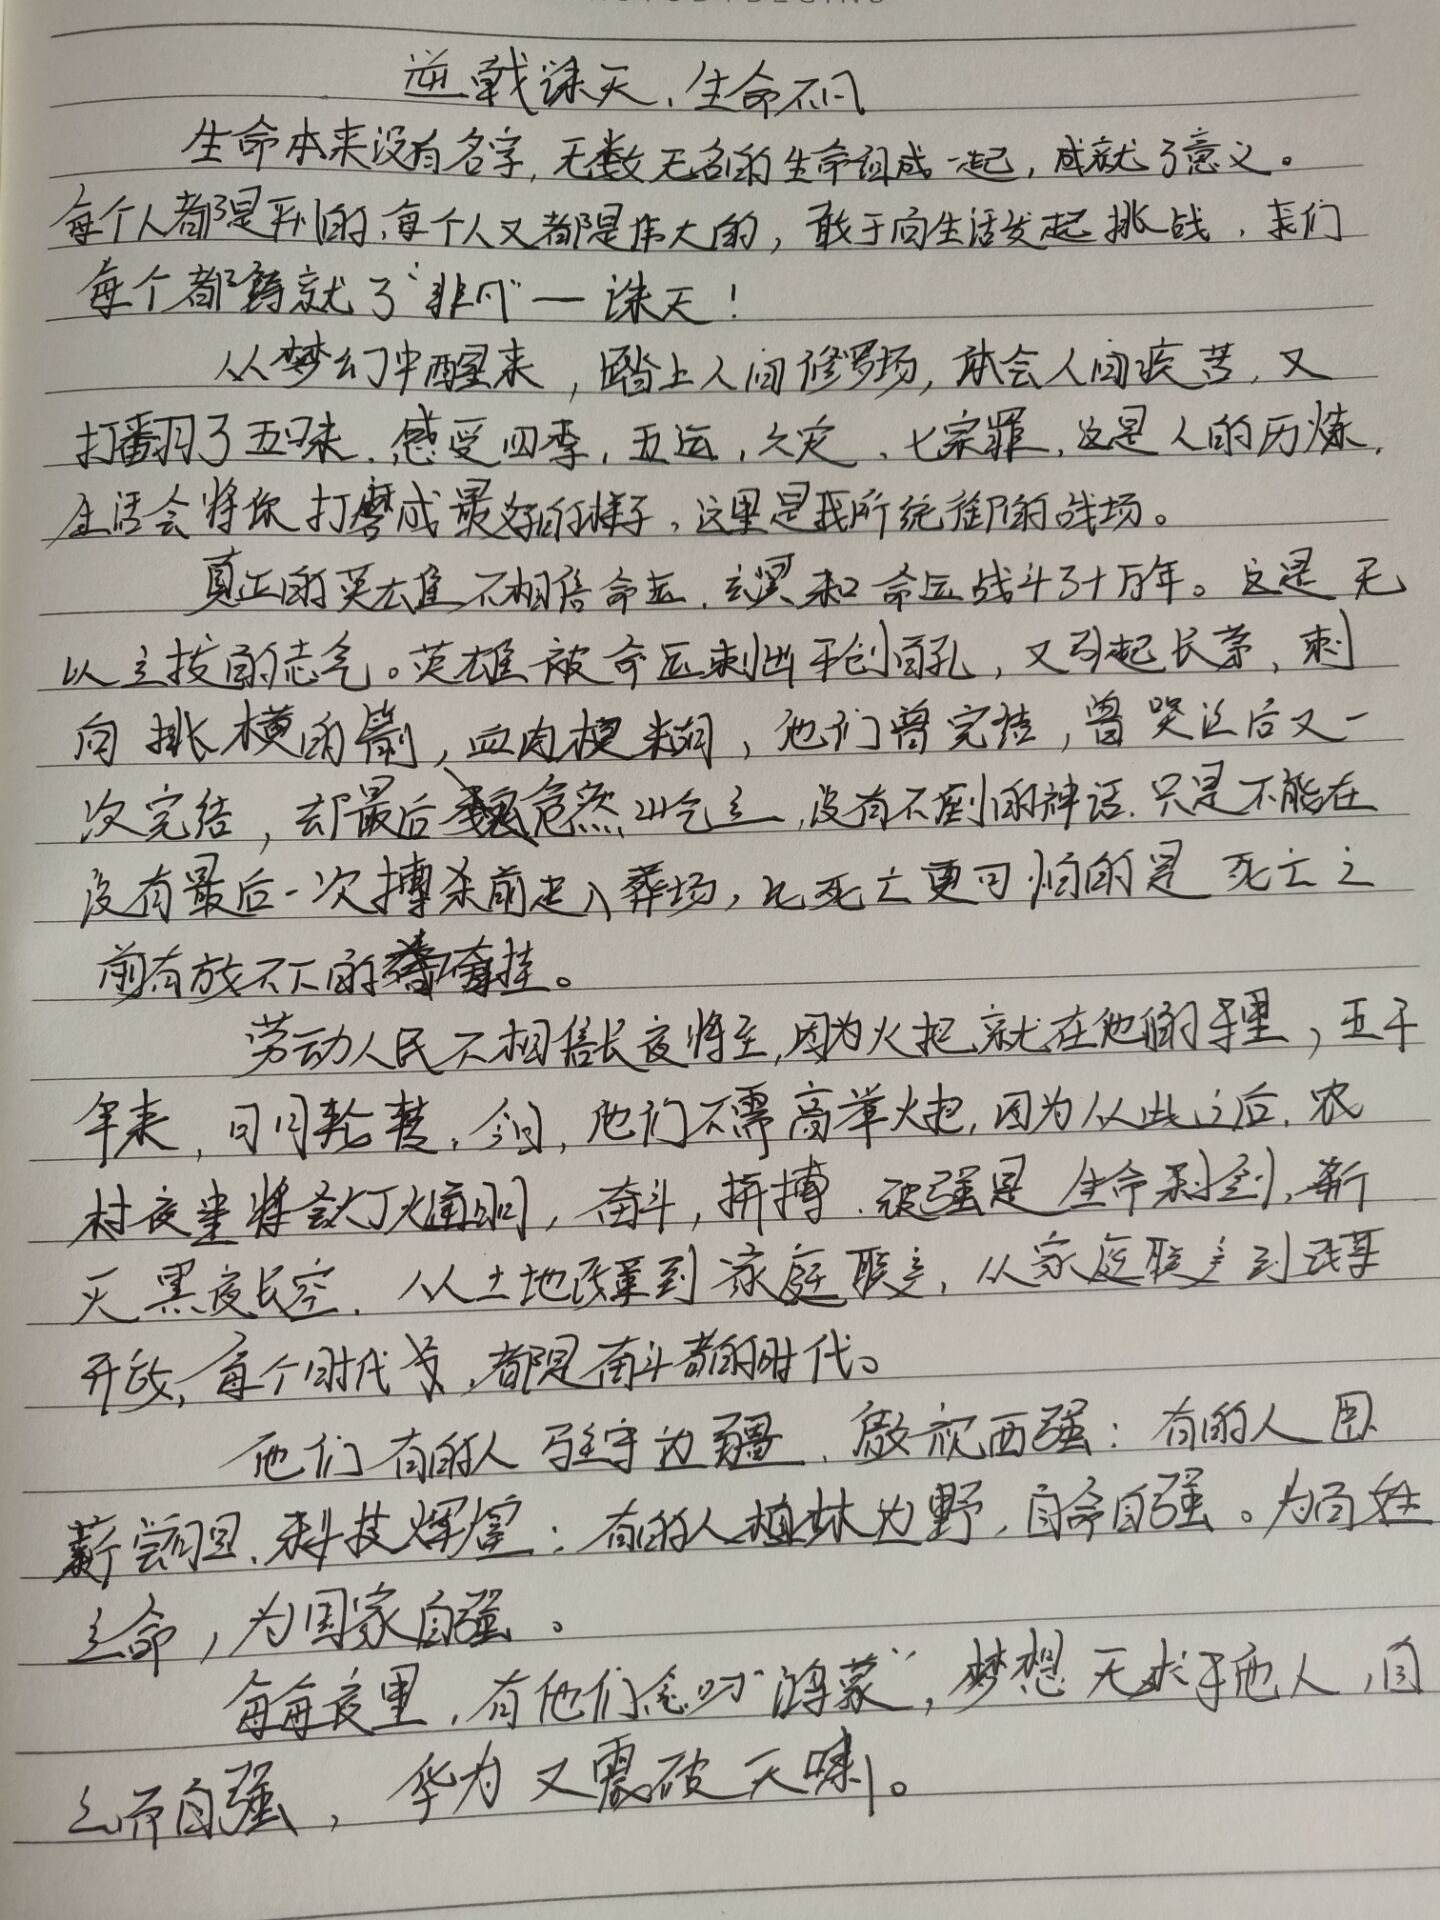 逆战诛天，生命不凡
生命本来没有名字，无数无名的生命组成一起，成就了意义。
每个人都是平凡的，每个人又都是伟大的，敢于向生活发起挑战，我们
每个都铸就了“非凡”—诛天！
从梦幻中醒来，踏上人间修罗场，体会人间疾苦，又
打翻了五味，感受四季，五运，六灾，七宗罪，这是人的历炼，
生活会将你打磨成最好的样子，这里是我所统御的战场。
真正的英雄不相信命运，和命运战斗了十万年。这是无
以立拔的志气。英雄被命运刺出千创百孔，又引起长茅，刺
向挑横的箭，血肉模糊，他们曾完结，曾哭泣后又一
次完结，却最后危然屹立，没有不倒的神话，只是不能在
没有最后一次搏杀前走入葬场，比死亡更可怕的是死亡之
前有放不下的牵挂。
劳动人民不相信长夜将至，因为火把就在他们手里，五千
年来，日月轮替，今日，他们不需高举火把，因为从此之后，农
村夜里将会灯火通明，奋斗，拼搏，顽强是生命利剑，斩
灭黑夜长空，从土地改革到家庭联产，从家庭联产到改革
开放，每个时代，都是奋斗者的时代。
他们有的人驻守边疆，傲视西强；有的人卧
薪尝胆，科技辉煌；有的人植林为野，自命自强。为百姓
立命，为国家自强。
每每夜里，有他们念叨“鸿蒙”，梦想无求于他人，自
立而自强，华为又震破天啸。